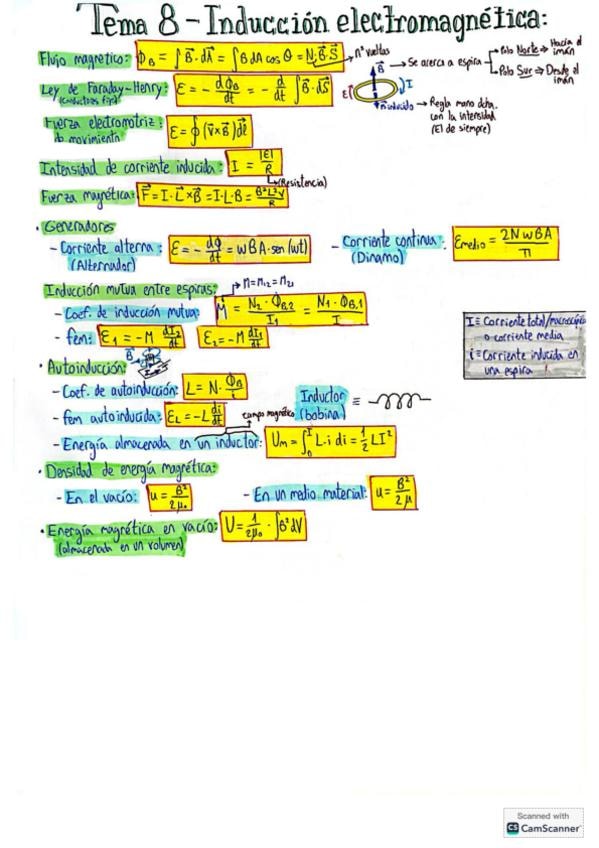 Tema 8 - Inducción electromagnética:
Flujo magnetico: ϕ_B = ∫B⃗·dA⃗ = ∫B dA cos θ = N·B⃗·S⃗ → nº vueltas
B⃗ → Se acerca a espira → Polo Norte ⇒ Hacia el imán
→ Polo Sur ⇒ Desde el imán
Ley de Faraday-Henry: ε = - dϕ_B/dt = - d/dt ∫B⃗·dS⃗
(conductores fijos)
|ε| I
B⃗ inducido → Regla mano dcha. con la intensidad
(El de siempre)
Fuerza electromotriz: ε = ∮(v⃗×B⃗)dl⃗
movimiento
Intensidad de corriente inducida: I = |ε|/R
↳(Resistencia)
Fuerza magética: F⃗ = I·L⃗×B⃗ = I·L·B = B²L²v/R
· Generadores
- Corriente alterna: ε = - dϕ/dt = wBA·sen(wt)
(Alternador)
- Corriente continua: ε_medio = 2NwBA/π
(Dinamo)
Inducción mutua entre espiras: → M=M₁₂=M₂₁
- Coef. de inducción mutua: M = N₂·ϕ_B,2/I₁ = N₁·ϕ_B,1/I
- fem: ε₁ = -M dI₂/dt ε₂ = -M dI₁/dt
I ≡ Corriente total/macroscópica
o corriente media
i ≡ Corriente inducida en
una espira
· Autoinducción: B⃗
- Coef. de autoinducción: L = N· ϕ_B/i
Inductor (bobina) ≡
- fem autoinducida: ε_L = -L di/dt
campo magnético
- Energía almacenada en un inductor: U_m = ∫₀ᴵ L·i di = 1/2 LI²
· Densidad de energía magnética:
- En el vacío: u = B²/2μ₀ - En un medio material: u = B²/2μ
· Energía magnética en vacío: U = 1/2μ₀ · ∫B²dV
(almacenada en un volumen)
Scanned with
CS CamScanner